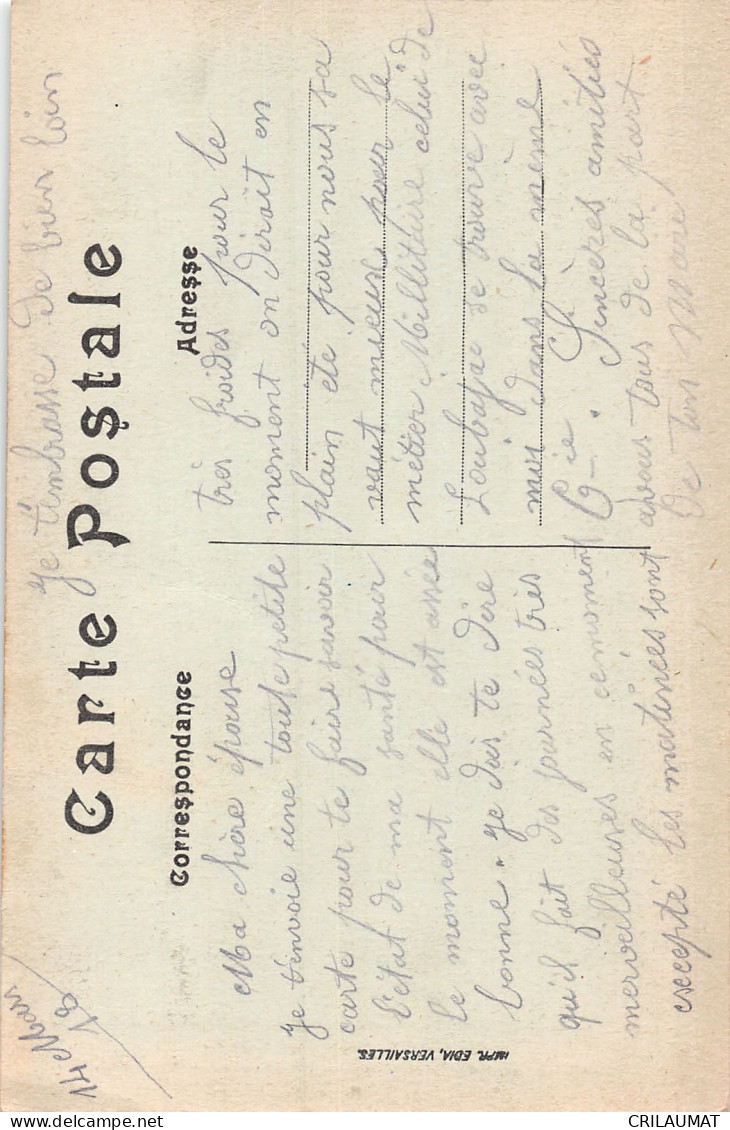 14 Mars
18
Je t'embrasse de bien loin
Carte Postale
Correspondance
Adresse
Ma chère épouse
Je t'envoie une toute petite
carte pour te faire savoir
l'état de ma santé pour
le moment elle est assée
bonne. Je dois te dire
qu'il fait des journées très
merveilleuses en ce moment
excepté les matinées sont
très froides pour le
moment on diroit en
plain été pour nous sa
vaut mieux pour le
métier Millitaire celui de
Loubajac se trouve avec
moi dans la même
Cie. Sincères amitiés
avous tous de la part
De ton
IMPR. EDIA, VERSAILLES.
CRILAUMAT